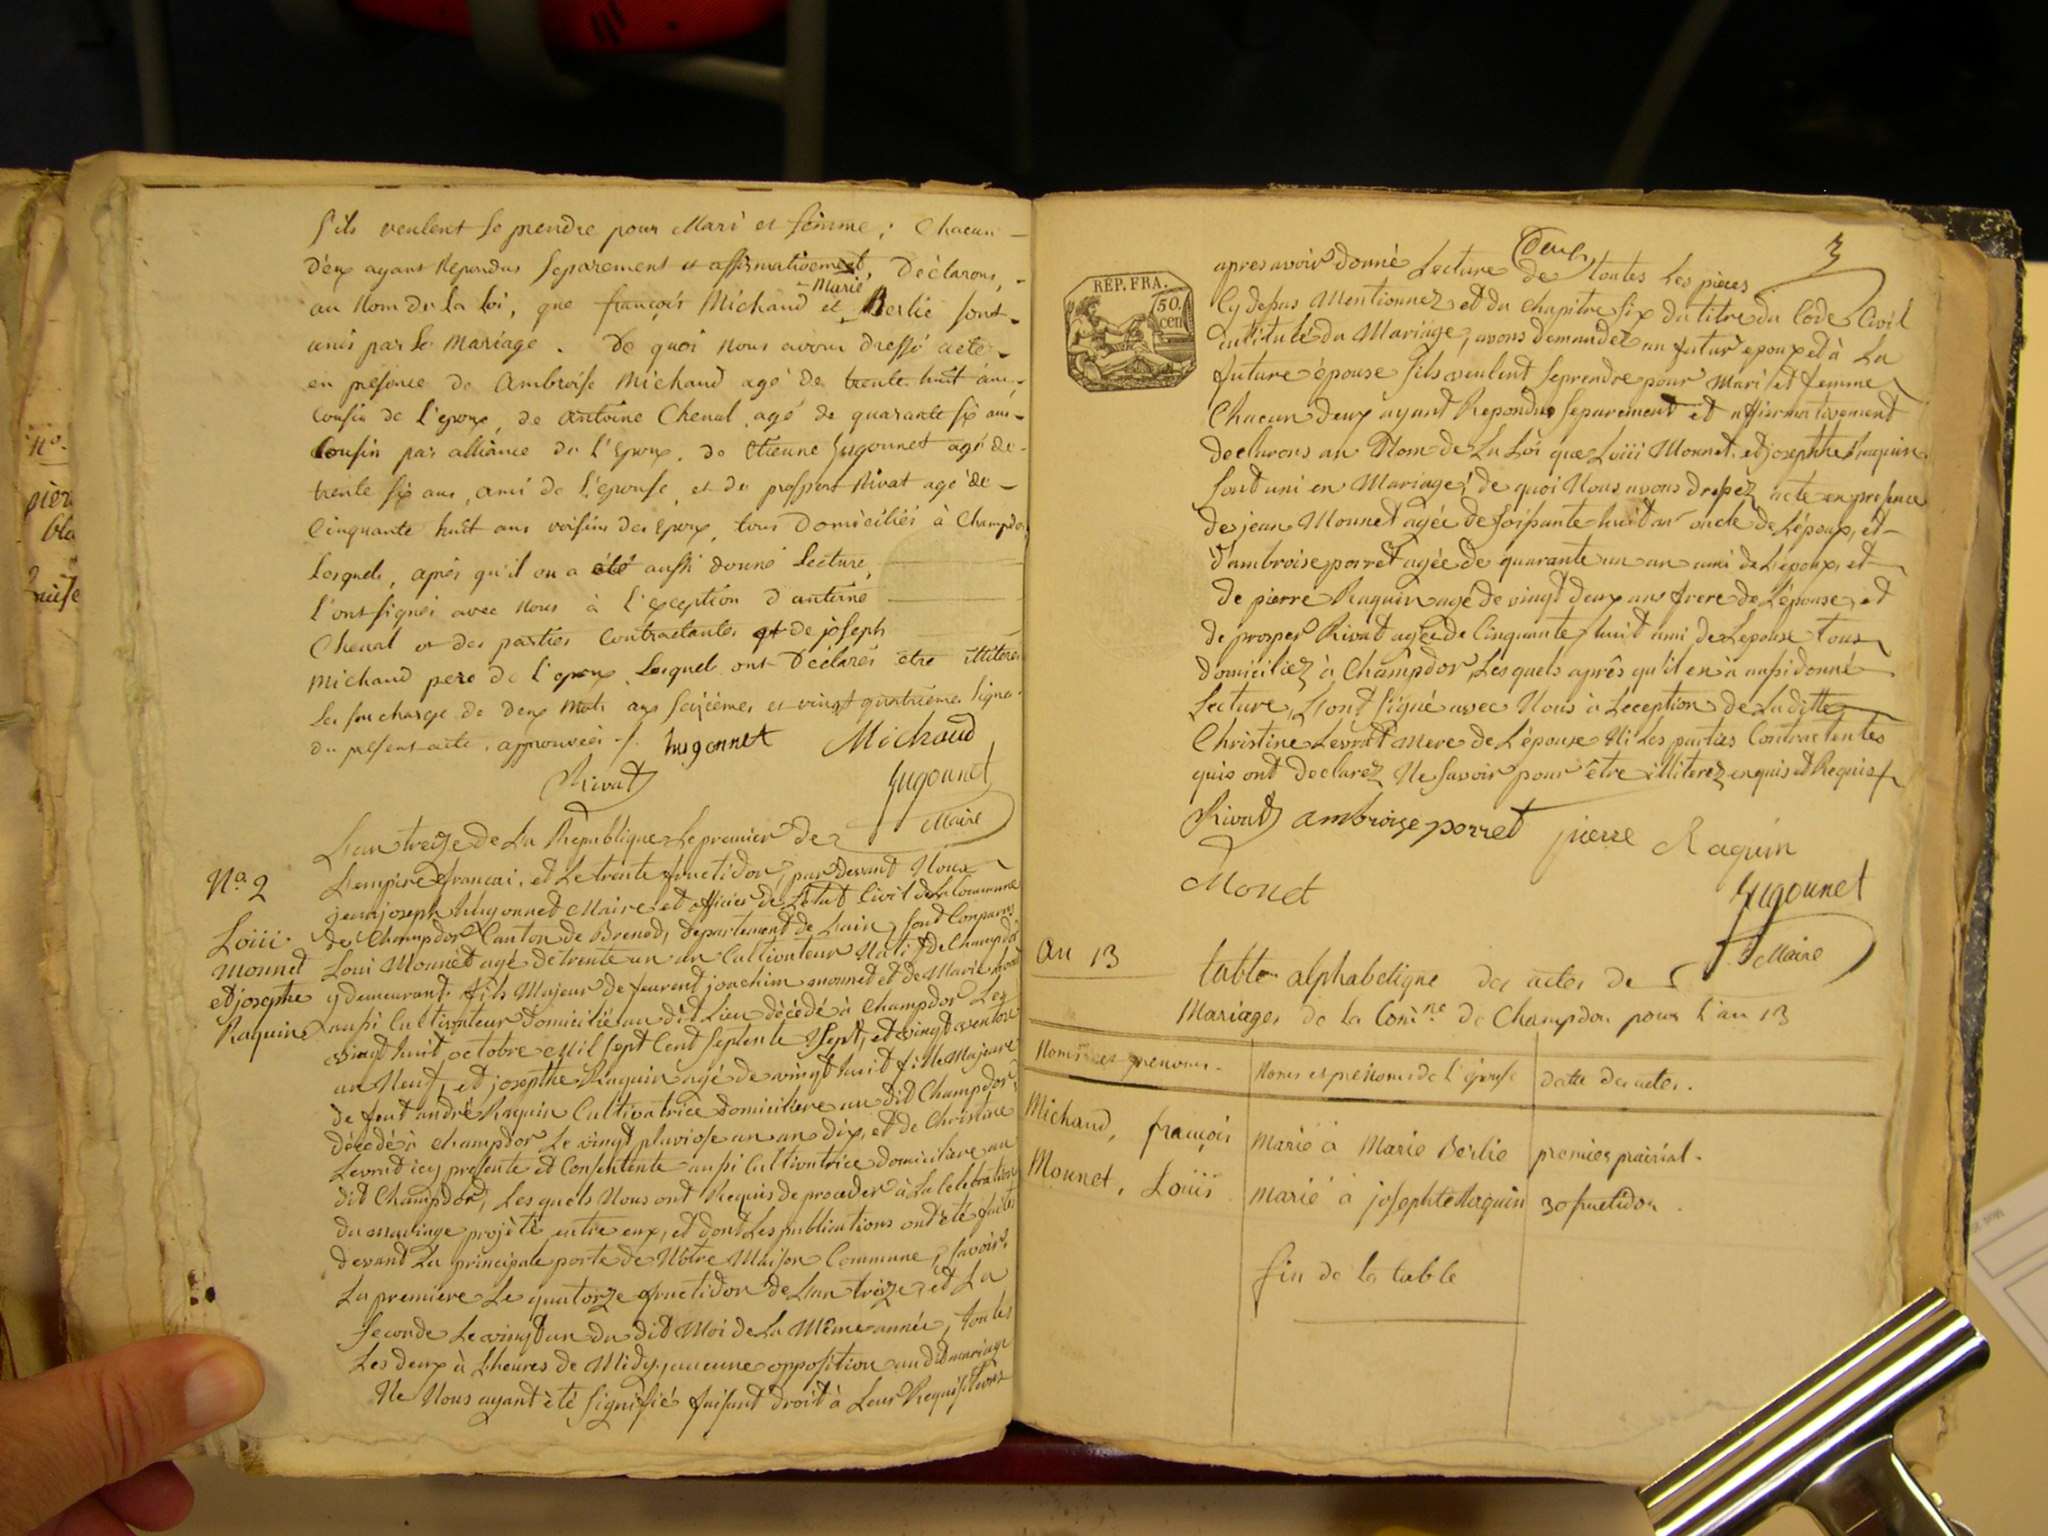 s'ils veulent se prendre pour Mari et femme ; Chacun
d'eux ayant Repondus Separement et affirmativement, Déclarons,
au Nom de la Loi, que françois Michaud et Marie Berlie sont
unis par le Mariage. De quoi nous avons dressé acte
en présence de Ambroise Michaud agé de trente huit ans,
Cousin de l'epoux, de Antoine Chenal, agé de quarante six ans
Cousin par alliance de l'Epoux, de Etienne hugonnet agé de
trente six ans, ami de l'épouse, et de prosper Rivat agé de
Cinquante huit ans voisin des Epoux, tous Domiciliés à Champdor
Lesquels, après qu'il en a été aussi donné Lecture,
l'ont signés avec nous à l'exception d'antoine
Chenal et des parties Contractantes et de joseph
Michaud pere de l'epoux Lesquels ont Déclarés être illiterés
La surcharge de deux Mots aux Seizième et vingt quatrième lignes
du présent acte, approuvées
hugonnet Michaud
Rivat hugonnet
Maire
L'an treize de La Republique Le premier de
L'empire francai, et Le trente fructidor, par devant Nous
Na 2
jean joseph hugonnet Maire et officier de L'Etat Civil de La Commune
de Champdor Canton de Brenod, departement de L'ain, sont Comparus
Loiii
Monnet
et josephte
Raquin
Loui Monnet agé de trente un an Cultivateur Natif de Champdor
y demeurant. fils Majeur de feu joachim monnet et de Marie
aussi Cultivateur domicilié au dit Lieu décédé à Champdor Les
vingt huit octobre Mil sept Cent septente sept, et vingt ventose
an Neuf, et josepthe Raquin agé de vingt huit fille Majeure
de feut andré Raquin Cultivatrice domiciliere au dit Champdor
décédé à Champdor Le vingt pluviose an an dix, et de Christine
Levrat icy presente et Consentente aussi Cultivatrice domiciliere au
dit Champdor, Lesquels Nous ont Requis de proceder à La Celebration
du mariage projèté entre eux, et dont Les publications ont été faites
devant La principale porte de Notre Maison Commune, savoir,
La premiere Le quatorze fructidor de L'an treize, et La
seconde Le vingt un du dit Moi de La Même année, toutes
Les deux à Lheures de Midy, aucune opposition au dit mariage
Ne Nous ayant été signifié faisant droit à Leur Requisitions
3
REP. FRA.
50.
cen
apres avoir donné Lecture de toutes Les pièces
Cy desus Mentionnez et du Chapitre six du titre du Code Civil
intitulé du Mariage, avons demandez au futur epoux et à La
future épouse s'ils veulent se prendre pour Mari et femme
Chacun deux ayant Repondus separement et affiermativement
declarons au Nom de La Loi que Loiii Monnet, et josephte Raquin
sont uni en Mariage, de quoi Nous avons drepez acte en presence
de jean Monnet agée de soissante huit an oncle de L'époux, et
d'ambroise porret agée de quarante un an ami de L'époux, et
de pierre Raquin agé de vingt deux ans frere de L'épouse, et
de prosper Rivat agée de Cinquante huit ami de Lepouse tous
domiciliez à Champdor, Lesquels après qu'il en à aussi donné
Lecture, L'ont signé avec Nous à Leception de Laditte
Christine Levrat Mere de L'épouse Ni Les parties Contractentes
quis ont declarez Ne savoir pour être illiterez enquis et Requis
Rivat ambroise porret pierre Raquin
Monet hugounet
Maire
an 13
table alphabetique des actes de
Mariages de la Com.ne de Champdor pour l'an 13
Noms et prenoms. Noms et preNoms de l'épouse datte des actes.
Michaud, françois Marié à Marie Berlie premier prairial.
Mounet, Loüis Marié à josephte Raquin 30 fructidor.
fin de la table